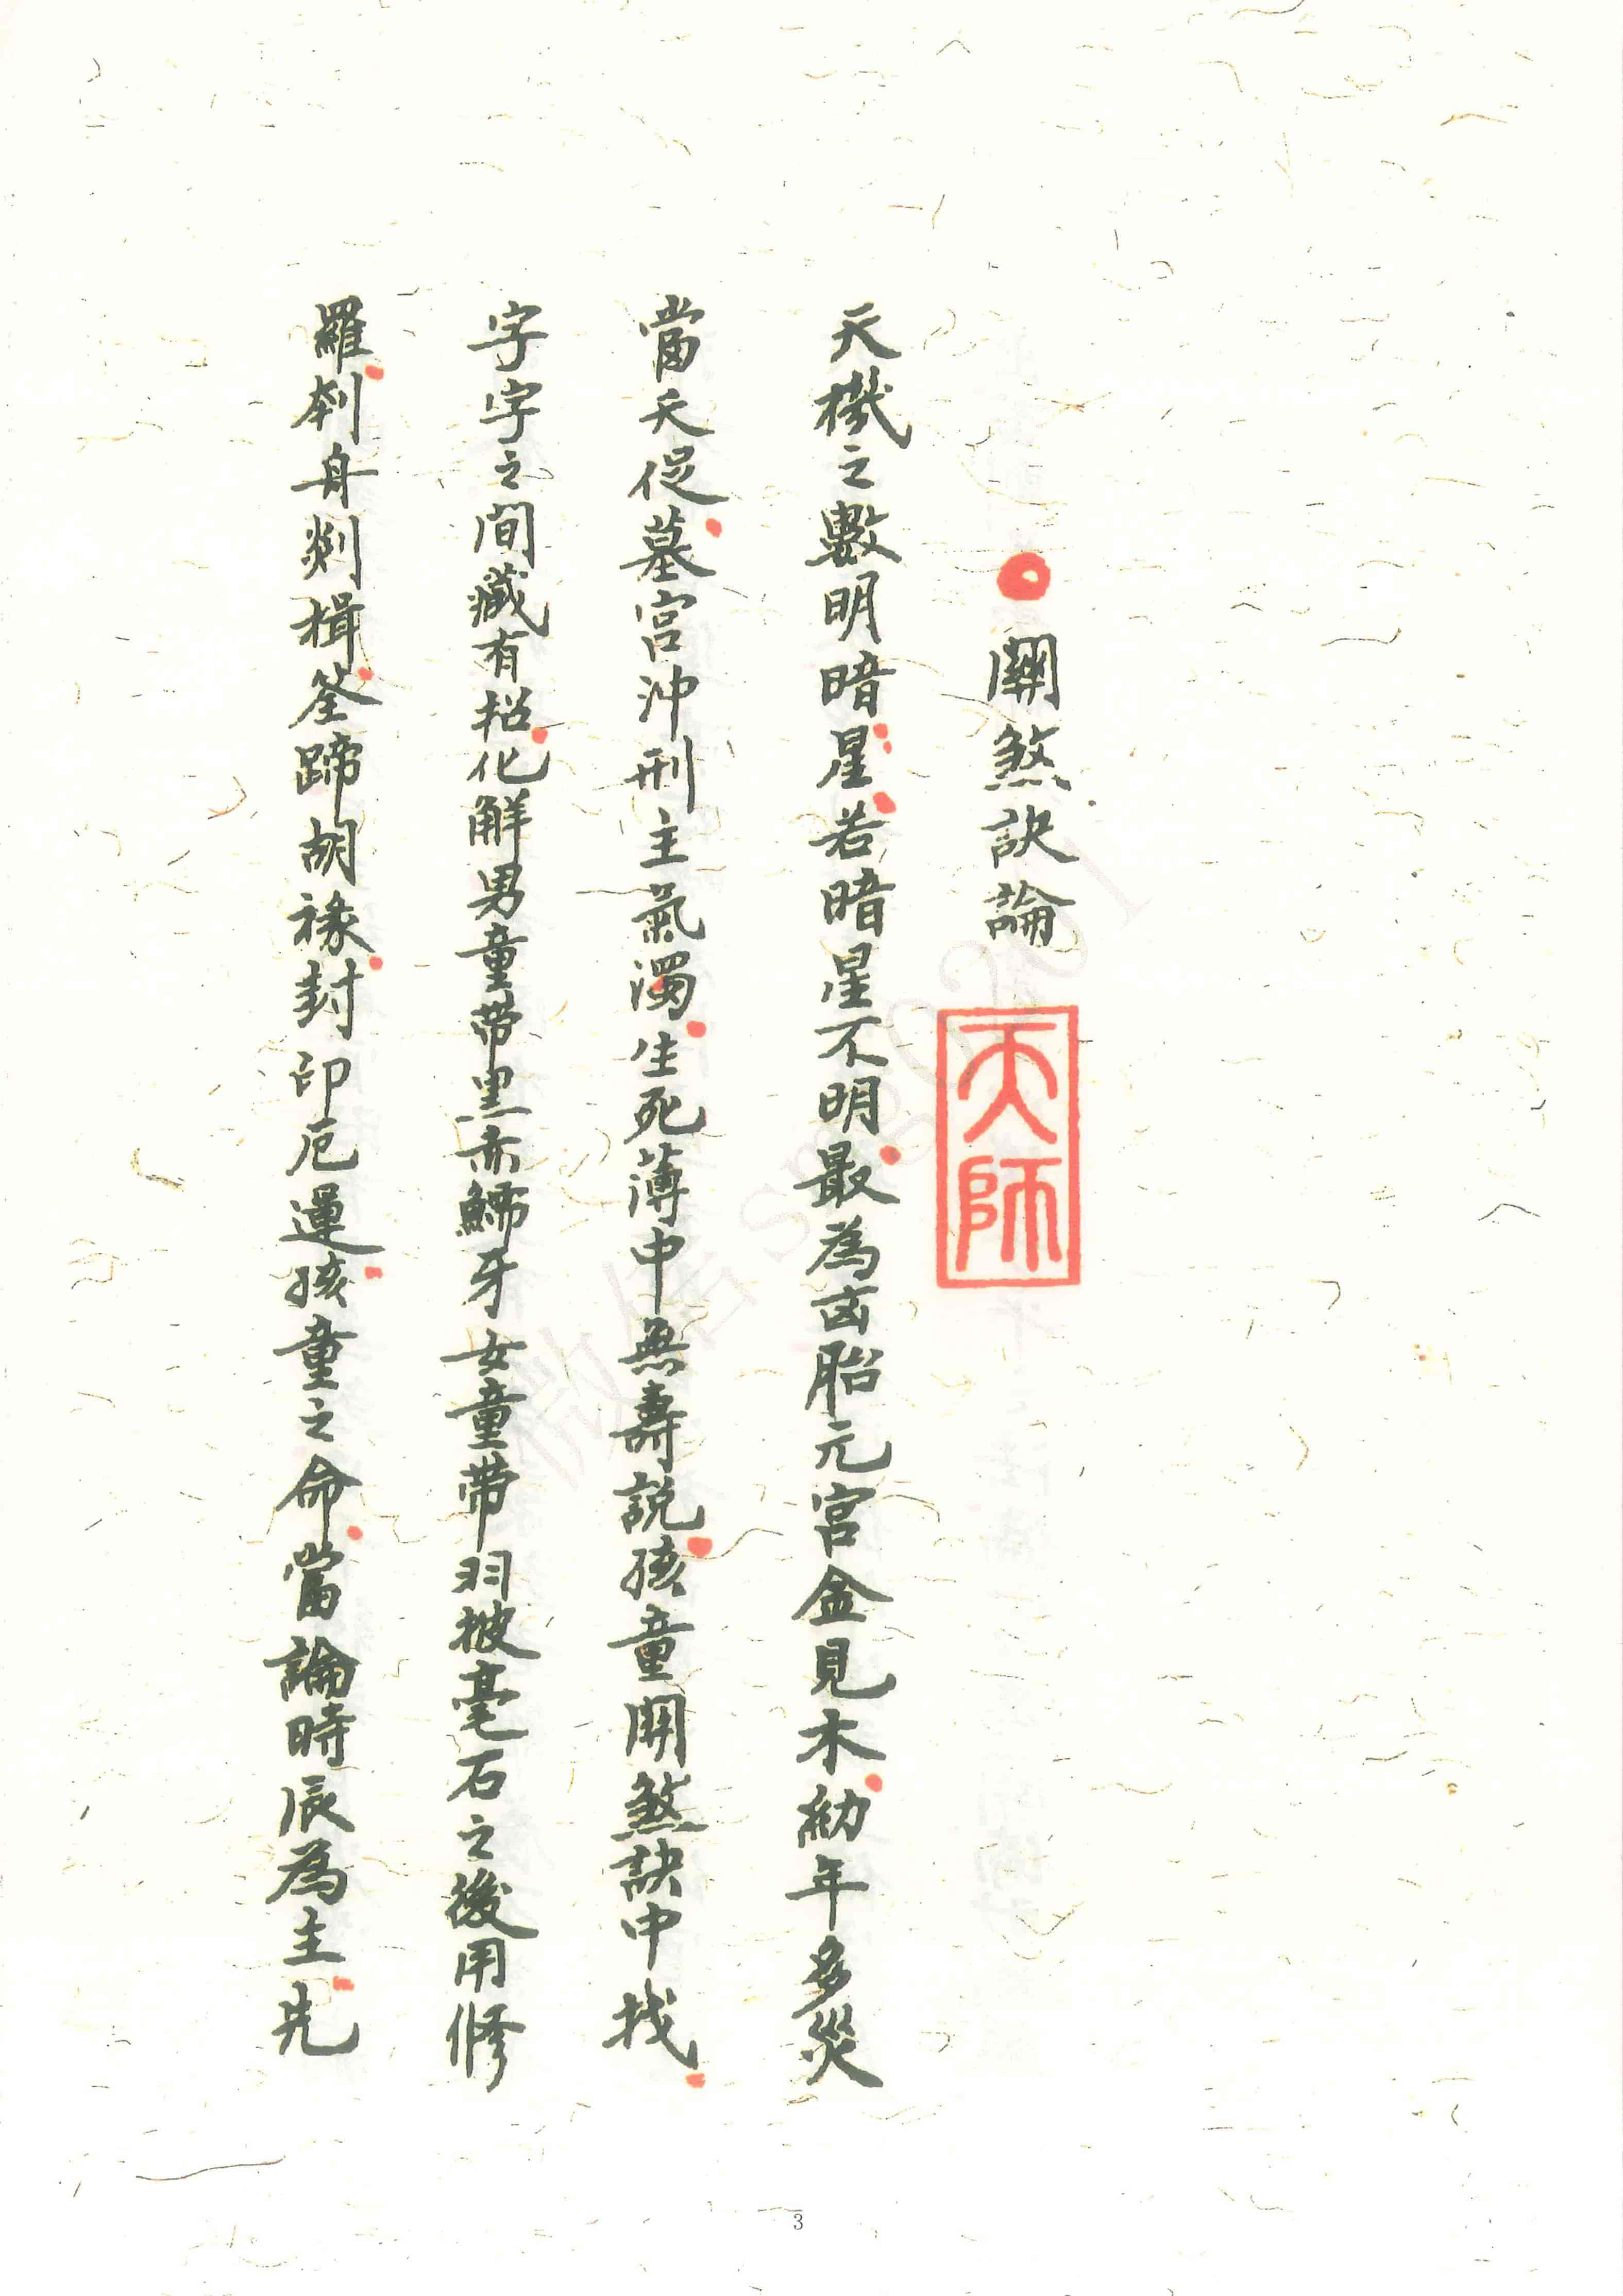 關煞訣論
天師
天機之數明暗星若暗星不明最為凶胎元宮金見木幼年多災
當夭促墓宮沖刑主氣濁生死薄中無壽説孩童關煞訣中找
字字之間藏有招化解男童帶黑赤鱬牙女童帶羽披毫石之後用修
羅刹舟剡楫筌蹄胡祿封印厄運孩童之命當論時辰為主先
3